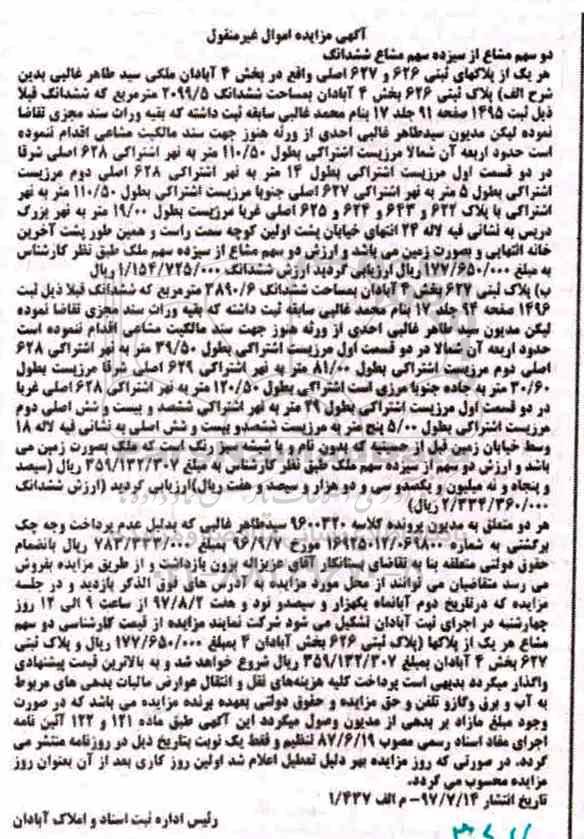 آگهی مزایده اموال غیرمنقول
دو سهم مشاع از سیزده سهم مشاع ششدانگ
هر یک از پلاکهای ثبتی ۶۲۶ و ۶۲۷ اصلی واقع در بخش ۴ آبادان ملکی سید طاهر غالبی بدین
شرح الف) پلاک ثبتی ۶۲۶ بخش ۴ آبادان بمساحت ششدانگ ۲۰۹۹/۵ مترمربع که ششدانگ قبلا
ذیل ثبت ۱۴۹۵ صفحه ۹۱ جلد ۱۷ بنام محمد غالبی سابقه ثبت داشته که بقیه وراث سند مجزی تقاضا
نموده لیکن مدیون سیدطاهر غالبی احدی از ورثه هنوز جهت سند مالکیت مشاعی اقدام ننموده
است حدود اربعه آن شمالا مرزیست اشتراکی بطول ۱۱۰/۵۰ متر به نهر اشتراکی ۶۲۸ اصلی شرقا
در دو قسمت اول مرزیست اشتراکی بطول ۱۴ متر به نهر اشتراکی ۶۲۸ اصلی دوم مرزیست
اشتراکی بطول ۵ متر به نهر اشتراکی ۶۲۷ اصلی جنوبا مرزیست اشتراکی بطول ۱۱۰/۵۰ متر به نهر
اشتراکی با پلاک ۶۲۲ و ۶۴۳ و ۶۲۴ و ۶۲۵ اصلی غربا مرزیست بطول ۱۹/۰۰ متر به نهر بزرگ
دریس به نشانی فیه لاله ۲۴ انتهای خیابان پشت اولین کوچه سمت راست و همین طور پشت آخرین
خانه انتهایی و بصورت زمین می باشد و ارزش دو سهم مشاع از سیزده سهم ملک طبق نظر کارشناس
به مبلغ ۱۷۷/۶۵۰/۰۰۰ ریال ارزیابی گردید ارزش ششدانگ ۱/۱۵۴/۷۲۵/۰۰۰ ریال
ب) پلاک ثبتی ۶۲۷ بخش ۴ آبادان بمساحت ششدانگ ۳۸۹۰/۶ مترمربع که ششدانگ قبلا ذیل ثبت
۱۴۹۶ صفحه ۹۴ جلد ۱۷ بنام محمد غالبی سابقه ثبت داشته که بقیه وراث سند مجزی تقاضا نموده
لیکن مدیون سید طاهر غالبی احدی از ورثه هنوز جهت سند مالکیت مشاعی اقدام ننموده است
حدود اربعه آن شمالا در دو قسمت اول مرزیست اشتراکی بطول ۳۹/۵۰ متر به نهر اشتراکی ۶۲۸
اصلی دوم مرزیست اشتراکی بطول ۸۱/۰۰ متر به نهر اشتراکی ۶۲۹ اصلی شرقا مرزیست بطول
۳۰/۶۰ متر به جاده جنوبا مرزی است اشتراکی بطول ۱۲۰/۵۰ متر به نهر اشتراکی ۶۲۸ اصلی غربا
در دو قسمت اول مرزیست اشتراکی بطول ۲۹ متر به نهر اشتراکی ششصد و بیست و شش اصلی دوم
مرزیست اشتراکی بطول ۵/۰۰ پنج متر به مرزیست ششصدو بیست و شش اصلی به نشانی فیه لاله ۱۸
وسط خیابان زمین قبل از حسینیه که بدون نام و با شیشه سبز رنگ است که ملک بصورت زمین می
باشد و ارزش دو سهم از سیزده سهم ملک طبق نظر کارشناس به مبلغ ۳۵۹/۱۳۲/۳۰۷ ریال (سیصد
و پنجاه و نه میلیون و یکصدو سی و دو هزار و سیصد و هفت ریال)ارزیابی گردید (ارزش ششدانگ
۲/۳۳۴/۳۶۰/۰۰۰ ریال)
هر دو متعلق به مدیون پرونده کلاسه ۹۶۰۰۳۲۰ سیدطاهر غالبی که بدلیل عدم پرداخت وجه چک
برگشتی به شماره ۱۶۹۲۵۰۱۲/۰۶۹۸۰۰ مورخ ۹۶/۹/۷ بمبلغ ۷۸۳/۳۳۳/۰۰۰ ریال بانضمام
حقوق دولتی متعلقه بنا به تقاضای بستانکار آقای عزیزاله بزون بازداشت و از طریق مزایده بفروش
می رسد متقاضیان می توانند از محل مورد مزایده به آدرس های فوق الذکر بازدید و در جلسه
مزایده که درتاریخ دوم آبانماه یکهزار و سیصدو نود و هفت ۹۷/۸/۲ از ساعت ۹ الی ۱۲ روز
چهارشنبه در اجرای ثبت آبادان تشکیل می شود شرکت نمایند مزایده از قیمت کارشناسی دو سهم
مشاع هر یک از پلاکها (پلاک ثبتی ۶۲۶ بخش آبادان ۴ بمبلغ ۱۷۷/۶۵۰/۰۰۰ ریال و پلاک ثبتی
۶۲۷ بخش ۴ آبادان بمبلغ ۳۵۹/۱۳۲/۳۰۷ ریال شروع خواهد شد و به بالاترین قیمت پیشنهادی
واگذار میگردد بدیهی است پرداخت کلیه هزینه‌های نقل و انتقال عوارض مالیات بدهی های مربوط
به آب و برق وگازو تلفن و حق مزایده و حقوق دولتی بعهده برنده مزایده می باشد که در صورت
وجود مبلغ مازاد بر بدهی از مدیون وصول میگردد این آگهی طبق ماده ۱۲۱ و ۱۲۲ آئین نامه
اجرای مفاد اسناد رسمی مصوب ۸۷/۶/۱۹ تنظیم و فقط یک نوبت بتاریخ ذیل در روزنامه منتشر می
گردد. در صورتی که روز مزایده بهر دلیل تعطیل اعلام شد اولین روز کاری بعد از آن بعنوان روز
مزایده محسوب می گردد.
تاریخ انتشار ۹۷/۷/۱۴- م الف ۱/۴۳۷
رئیس اداره ثبت اسناد و املاک آبادان